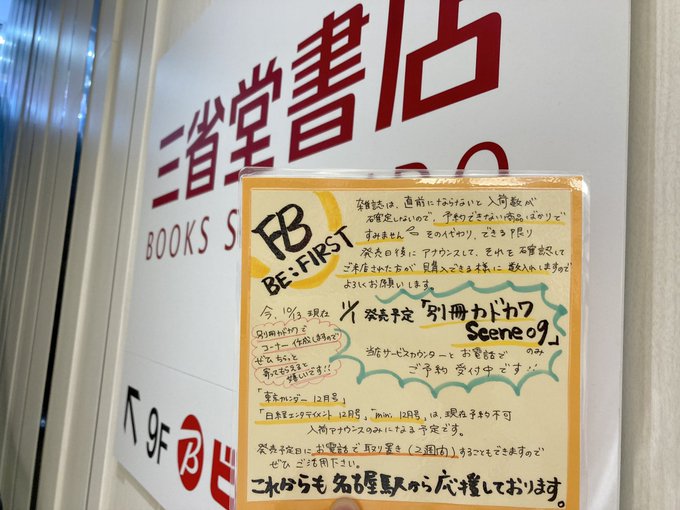 三省堂書店
BOOKS S
FB
BE:FIRST
雑誌は、直前にならないと入荷数が
確定しないので、予約できない商品ばかりで
すみません その代わり、できる限り
発売日後にアナウンスして、それを確認して
ご来店された方が購入できる様に数入れしますので
よろしくお願いします。
今、10/13 現在
別冊カドカワで
コーナー作成しますので
ぜひ ちらっと
寄ってもらえると
嬉しいです!!
11/1 発売予定「別冊カドカワ
Scene 09」
のみ
当店サービスカウンターとお電話で
ご予約 受付中です!!
「東京カレンダー 12月号」
「日経エンタテイメント 12月号」、"mini 12月号"は、現在予約不可
入荷アナウンスのみになる予定です。
発売予定日に お電話で取り置き(2週間)することもできますので
ぜひ ご活用下さい。
これからも 名古屋駅から応援しております。
↖ 9F B ビ